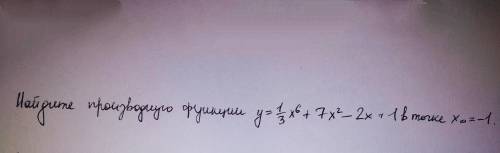 Найдите производную функции y=1/3x⁶+7x²-2x+1 в точке x₀=-1.